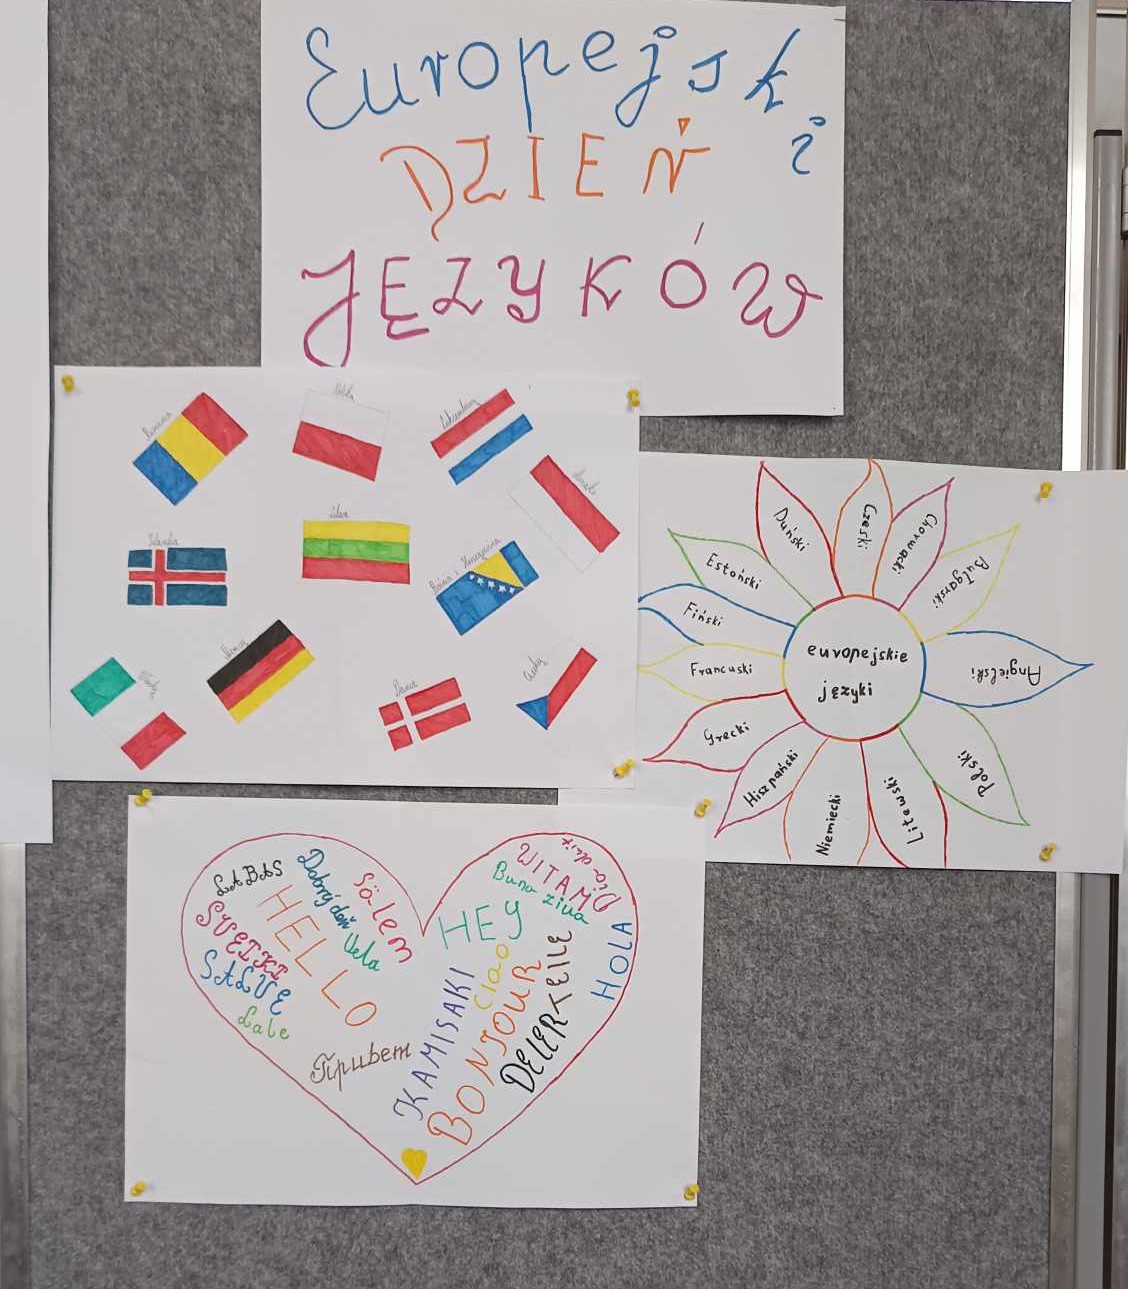 Europejski
DZIEŃ
JĘZYKÓW
Rumunia
Polska
Luksemburg
Islandia
Litwa
Bośnia i Hercegowina
Niemcy
Włochy
Dania
Czechy
europejskie
języki
Duński
Czeski
Chorwacki
Bułgarski
Angielski
Polski
Litewski
Niemiecki
Hiszpański
Grecki
Francuski
Fiński
Estoński
LABAS
Dobrý deň
Sälem
HELLO
Vela
SVEIKI
SALVE
Lale
Привет
WITAM
Dia dhuit
Buna ziua
HEY
HOLA
Ciao
KAMISAKI
BONJOUR